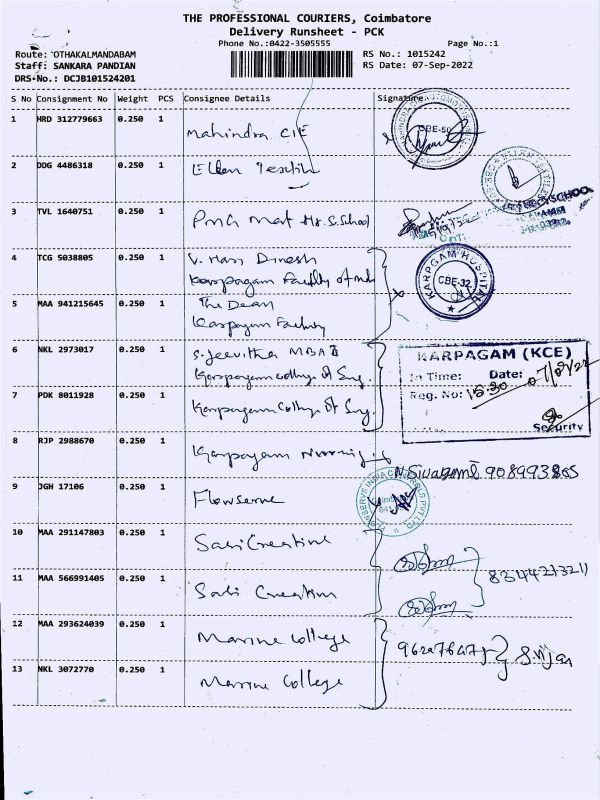 THE PROFESSIONAL COURIERS, Coimbatore
Delivery Runsheet - PCK
Phone No.:0422-3505555
Page No.:1
Route: OTHAKALMANDABAM
RS No.: 1015242
Staff: SANKARA PANDIAN
RS Date: 07-Sep-2022
DRS-No.: DCJB101524201
S No Consignment No Weight PCS Consignee Details Signature
1 HRD 312779663 0.250 1 Mahindra CIE
CBE-50
2 DDG 4486318 0.250 1
3 TVL 1640751 0.250 1 PMG Mat Hr. S. School
4 TCG 5038805 0.250 1 V. Hari Dinesh
Karpagam Faculty of
KARPAGAM HOSPITAL
CBE-32
5 MAA 941215645 0.250 1 The Dean
Karpagam Faculty
6 NKL 2973017 0.250 1 S. Jeevitha MBA II
Karpagam College of Eng.
KARPAGAM (KCE)
In Time: Date: 07/09/22
7 PDK 8011928 0.250 1 Karpagam College of Eng.
Reg. No: 15:30
Security
8 RJP 2988670 0.250 1 Karpagam Nursing
N. Sivagami
9 JGH 17106 0.250 1 Flowserve
10 MAA 291147803 0.250 1 Sabi Creation
8344273211
11 MAA 566991405 0.250 1 Sabi Creation
12 MAA 293624039 0.250 1 Marine College
13 NKL 3072770 0.250 1 Marine College